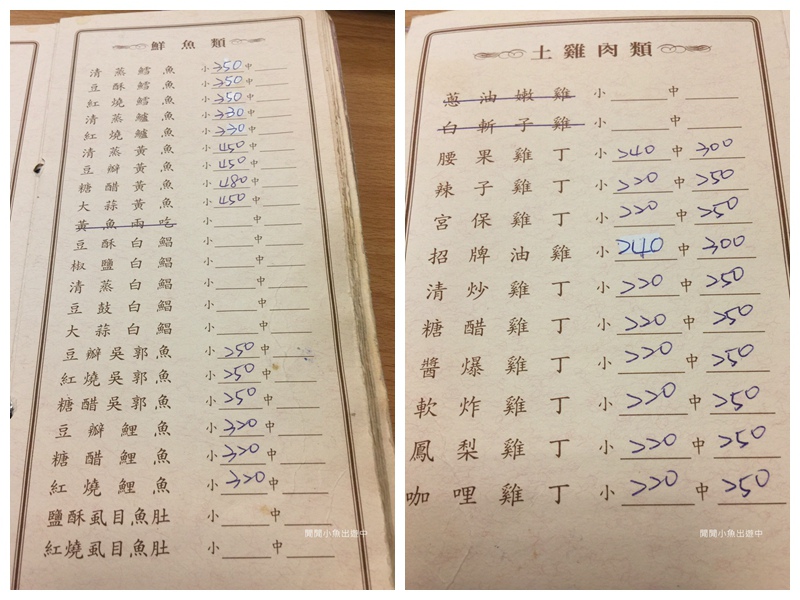 鮮魚類
清蒸鱈魚 小350中
豆酥鱈魚 小350中
紅燒鱈魚 小350中
清蒸鱸魚 小330中
紅燒鱸魚 小330中
清蒸黃魚 小450中
豆瓣黃魚 小450中
糖醋黃魚 小480中
大蒜黃魚 小450中
黃魚兩吃 小 中
豆酥白鯧 小 中
椒鹽白鯧 小 中
清蒸白鯧 小 中
豆鼓白鯧 小 中
大蒜白鯧 小 中
豆瓣吳郭魚 小250中
紅燒吳郭魚 小250中
糖醋吳郭魚 小250中
豆瓣鯉魚 小320中
糖醋鯉魚 小320中
紅燒鯉魚 小320中
鹽酥虱目魚肚 小 中
紅燒虱目魚肚 小 中
閒閒小魚出遊中
土雞肉類
蔥油嫩雞 小 中
白斬子雞 小 中
腰果雞丁 小240中300
辣子雞丁 小220中250
宮保雞丁 小220中250
招牌油雞 小240中300
清炒雞丁 小220中250
糖醋雞丁 小220中250
醬爆雞丁 小220中250
軟炸雞丁 小220中250
鳳梨雞丁 小220中250
咖哩雞丁 小220中250
閒閒小魚出遊中